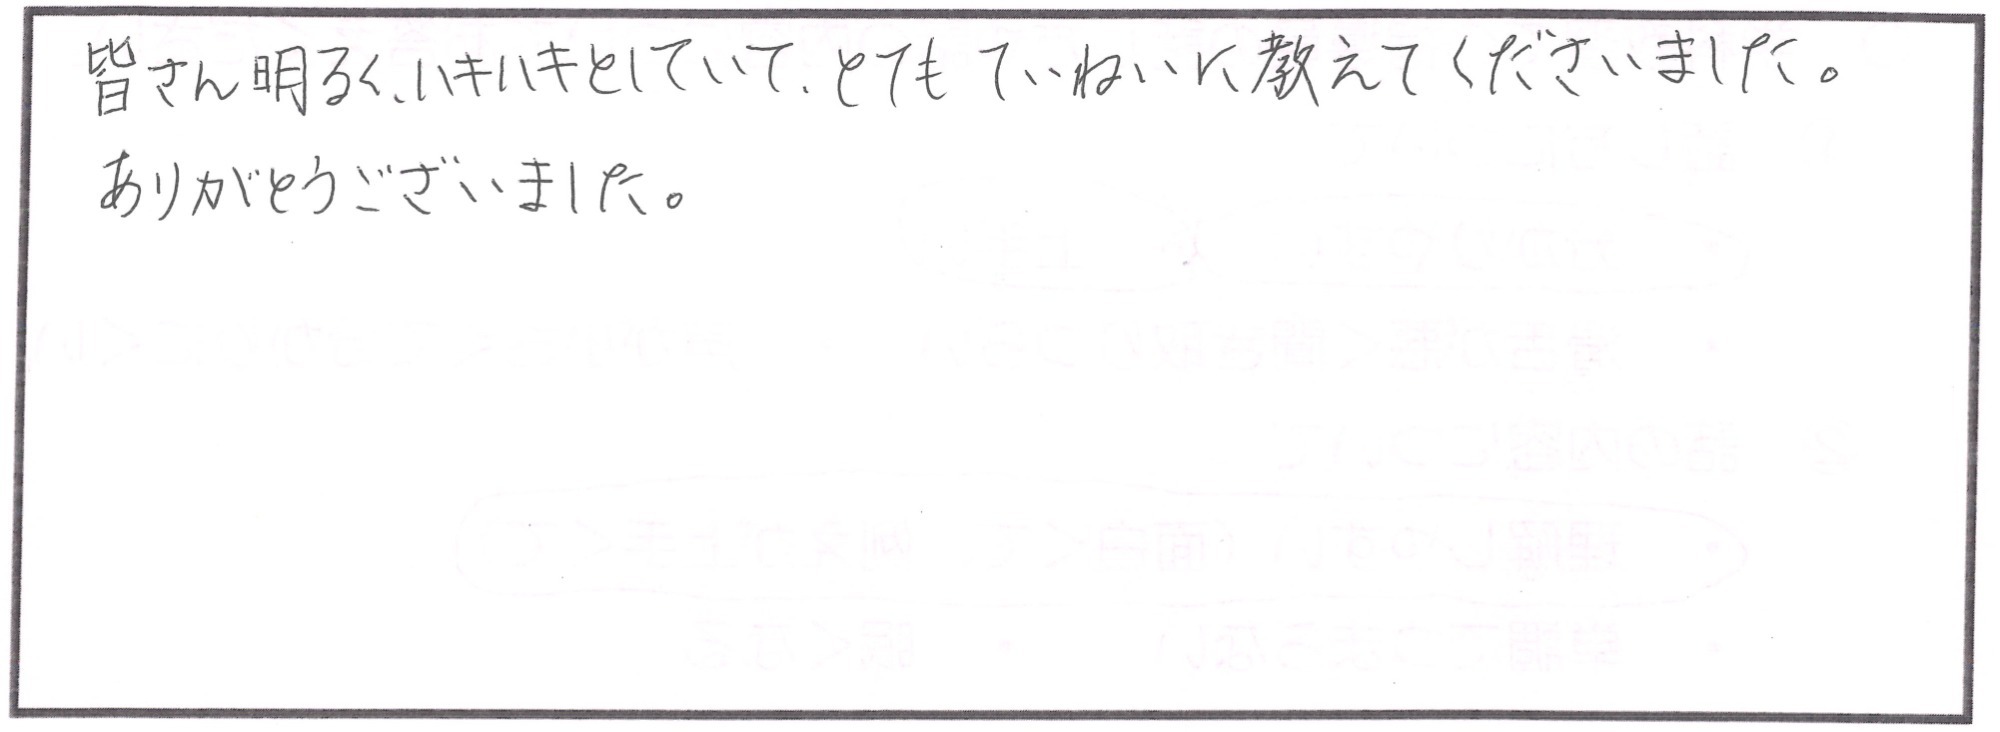 皆さん明るく、ハキハキとしていて、とてもていねいに教えてくださいました。
ありがとうございました。